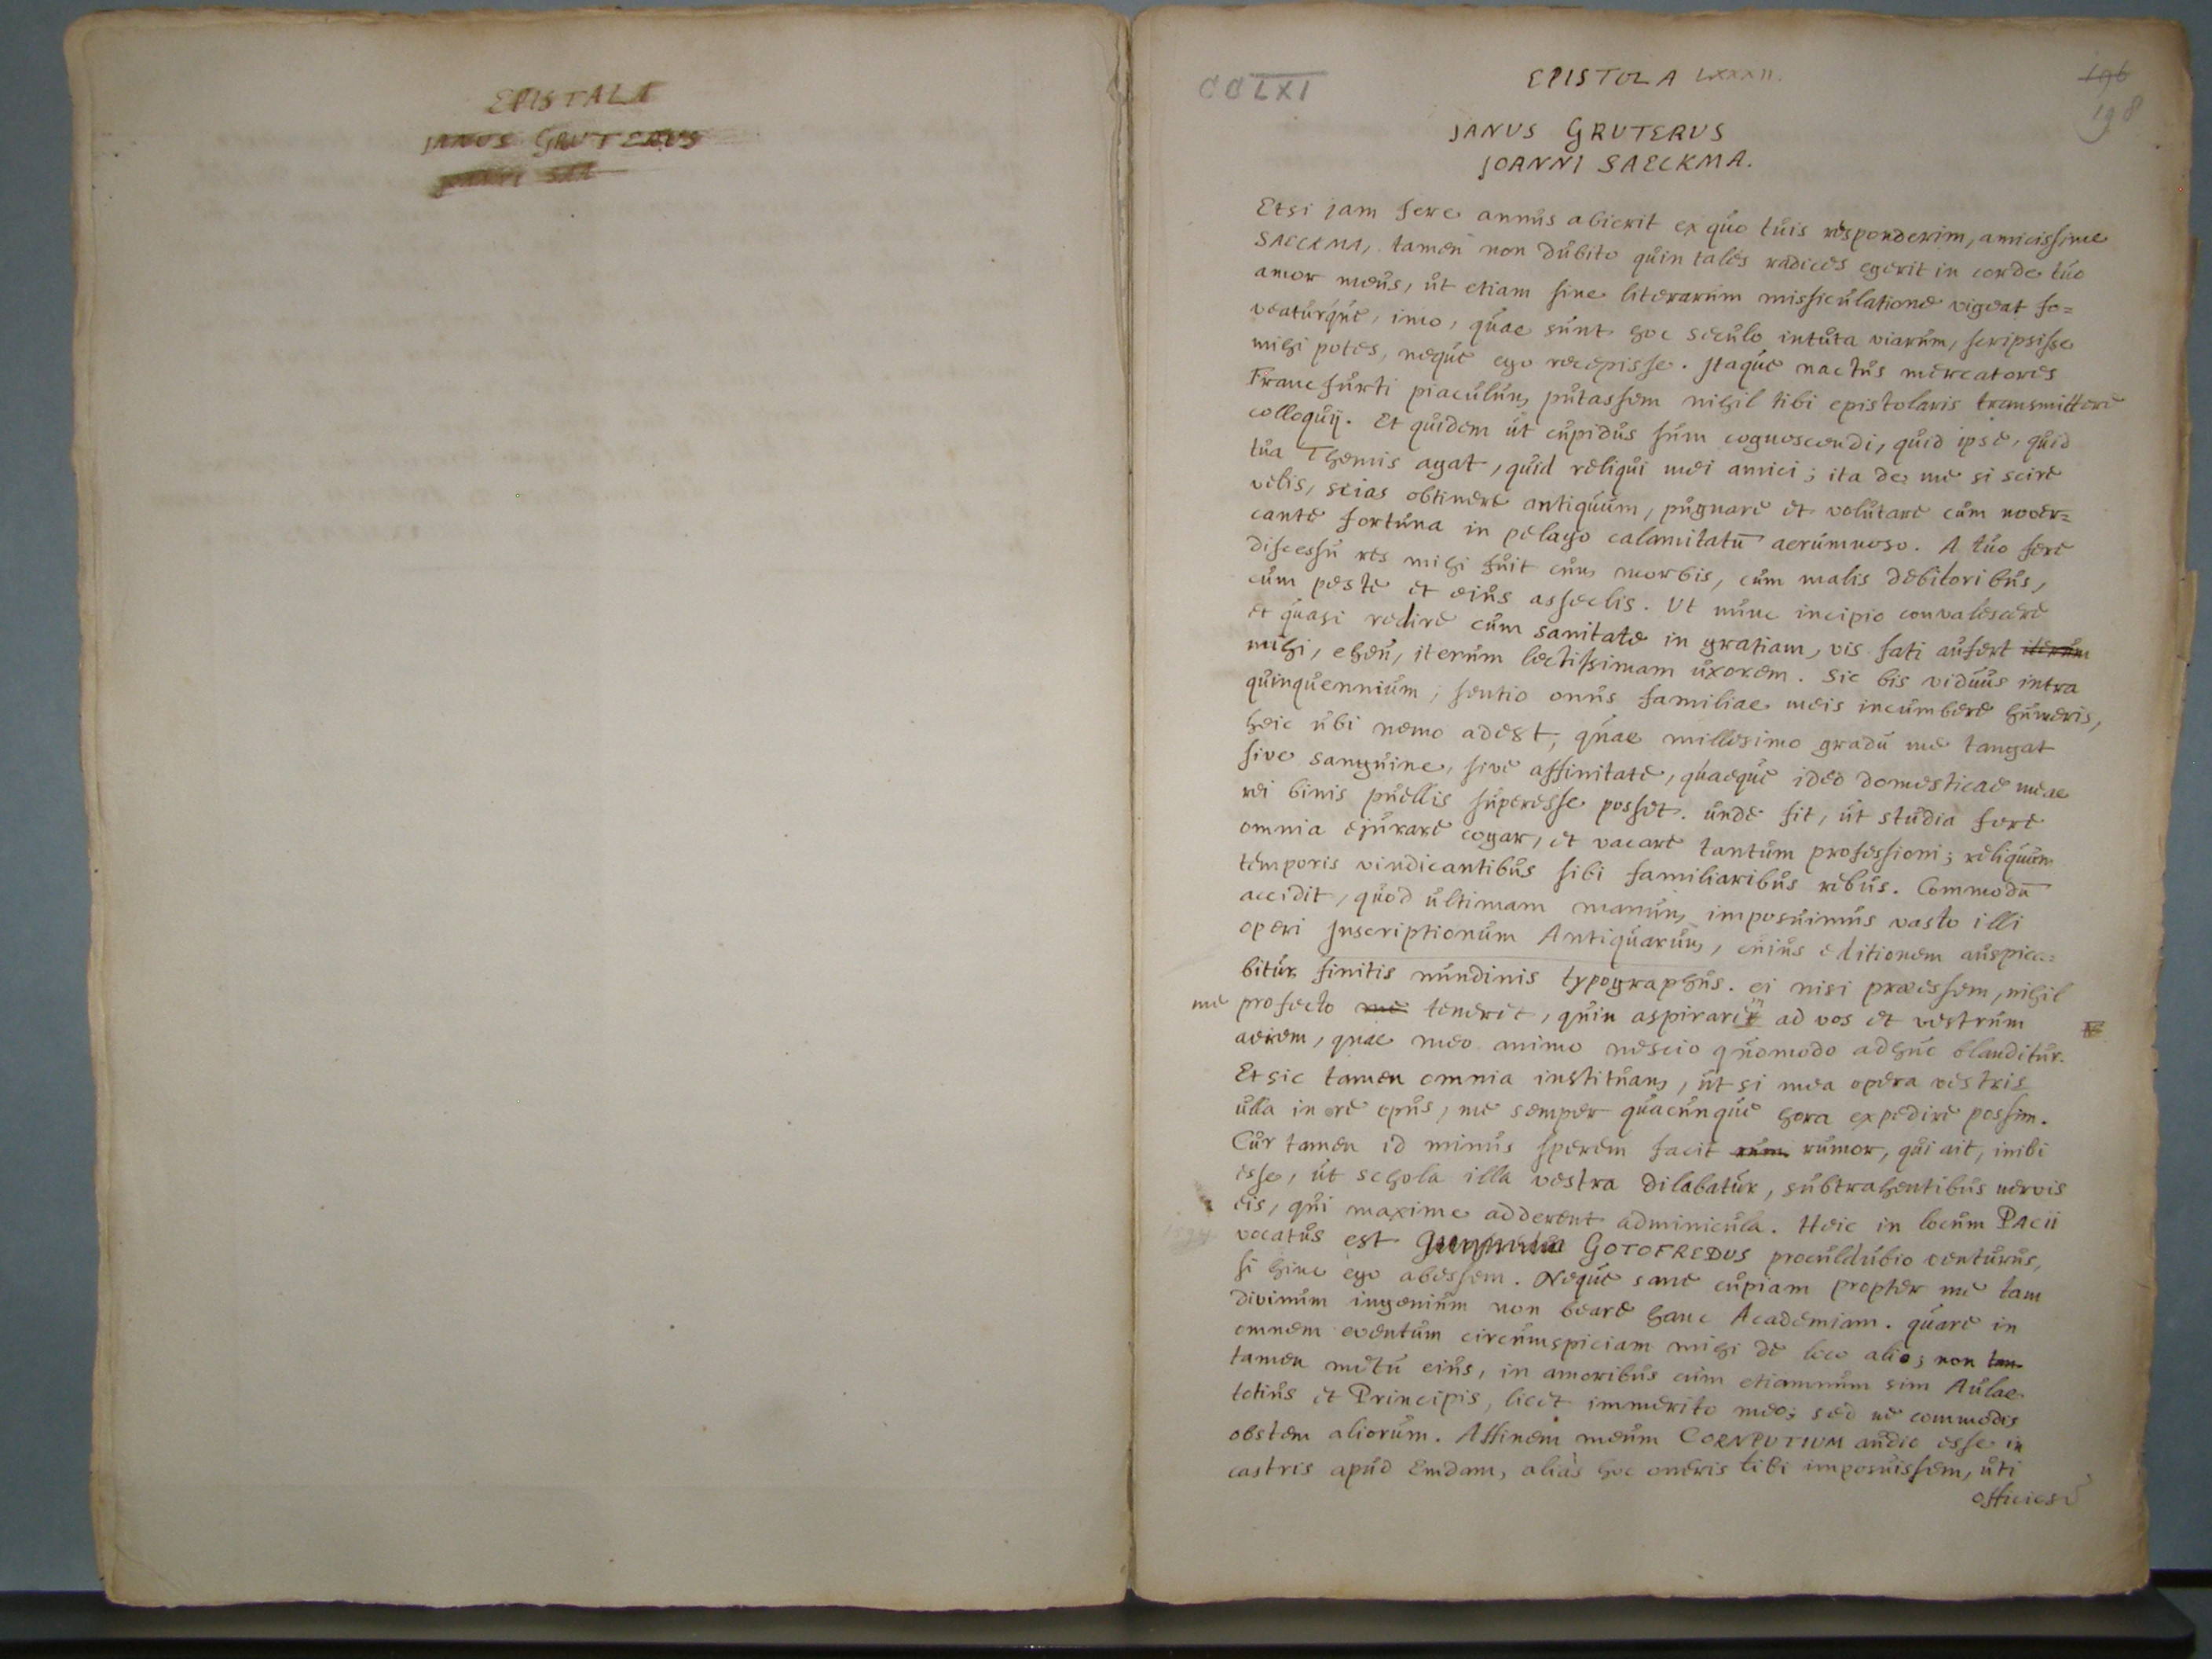 EPISTALA
JANUS GRUTERUS
JOANNI SAE
CCLXI
EPISTOLA LXXXII.
196
198
JANUS GRUTERUS
JOANNI SAECKMA.
Etsi jam fere annus abierit ex quo tuis responderim, amicissime
SAECKMA, tamen non dubito quin tales radices egerit in corde tuo
amor meus, ut etiam sine literarum missiculatione vigeat fo=
veaturque, imo, quae sunt hoc seculo intuta viarum, scripsisse
mihi potes, neque ego recepisse. Itaque nactus mercatores
Francfurti piaculum putassem nihil tibi epistolaris transmittere
colloquij. Et quidem ut cupidus sum cognoscendi, quid ipse, quid
tua Themis agat, quid reliqui mei amici; ita de me si scire
velis, scias obtinere antiquum, pugnare et volutare cum nover=
cante fortuna in pelago calamitatū aerumnoso. A tuo fere
discessu res mihi fuit cum morbis, cum malis debitoribus,
cum peste et eius asseclis. Ut nunc incipio convalescere
et quasi redire cum sanitate in gratiam, vis fati aufert iterum
mihi, eheu, iterum lectissimam uxorem. Sic bis viduus intra
quinquennium, sentio onus familiae meis incumbere humeris,
heic ubi nemo adest, quae millesimo gradu me tangat
sive sanguine, sive affinitate, quaeque ideo domesticae meae
rei binis puellis superesse posset. unde fit, ut studia fere
omnia ejurare cogar, et vacare tantum professioni; reliquum
temporis vindicantibus sibi familiaribus rebus. Commodū
accidit, quod ultimam manum imposuimus vasto illi
operi Inscriptionum Antiquarum, cuius editionem auspica=
bitur finitis nundinis typographus. ei nisi praeessem, nihil
me profecto me teneret, quin aspirarem ad vos et vestrum
aerem, quae meo animo nescio quomodo adhuc blanditur.
Et sic tamen omnia instituam, ut si mea opera vestris
ulla in re opus, me semper quacunque hora expedire possim.
Cur tamen id minus sperem facit rum rumor, qui ait, inibi
esse, ut schola illa vestra dilabatur, subtrahentibus nervis
eis, qui maxime adderent adminicula. Heic in locum PACII
vocatus est GOTOFREDUS proculdubio venturus,
si hinc ego abessem. Neque sane cupiam propter me tam
divinum ingenium non beare hanc Academiam. quare in
omnem eventum circumspiciam mihi de loco alio; non tam
tamen metu eius, in amoribus cum etiamnum sim Aulae
totius et Principis, licet immerito meo; sed ne commodis
obstem aliorum. Affinem meum CORNPUTIUM audio esse in
castris apud Emdam, alias hoc oneris tibi imposuissem, uti
officiose